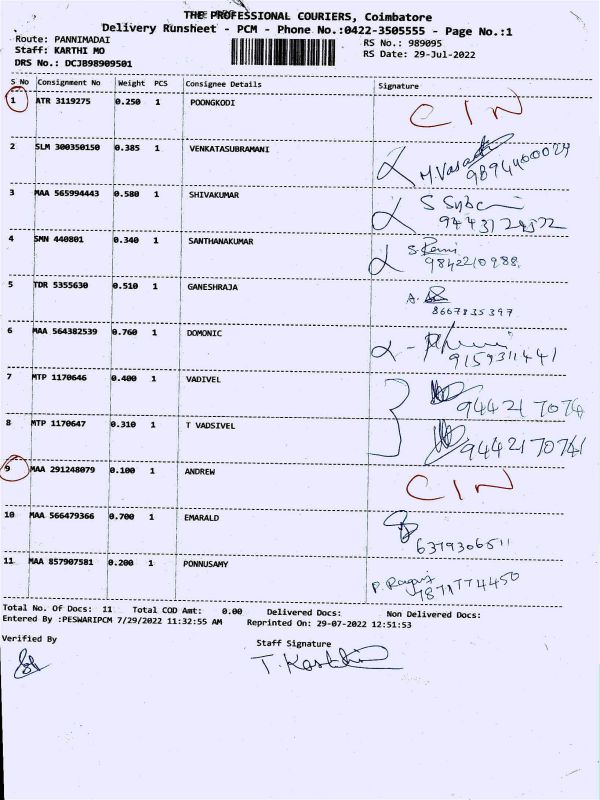 THE PROFESSIONAL COURIERS, Coimbatore
Delivery Runsheet - PCM - Phone No.:0422-3505555 - Page No.:1
Route: PANNIMADAI
Staff: KARTHI MO
DRS No.: DCJB98909501
RS No.: 989095
RS Date: 29-Jul-2022
S No Consignment No Weight PCS Consignee Details Signature
1 ATR 3119275 0.250 1 POONGKODI CIN
2 SLM 300350150 0.385 1 VENKATASUBRAMANI
9894400029
3 MAA 565994443 0.580 1 SHIVAKUMAR
4 SMN 440801 0.340 1 SANTHANAKUMAR
9842210988
5 TDR 5355630 0.510 1 GANESHRAJA
8667835397
6 MAA 564382539 0.760 1 DOMONIC
9159311441
7 MTP 1170646 0.400 1 VADIVEL
944217074
8 MTP 1170647 0.310 1 T VADSIVEL
9442170741
9 MAA 291248079 0.100 1 ANDREW CIN
10 MAA 566479366 0.700 1 EMARALD
6379306511
11 MAA 857907581 0.200 1 PONNUSAMY
7871774450
Total No. Of Docs: 11 Total COD Amt: 0.00 Delivered Docs: Non Delivered Docs:
Entered By :PESWARIPCM 7/29/2022 11:32:55 AM Reprinted On: 29-07-2022 12:51:53
Verified By
Staff Signature